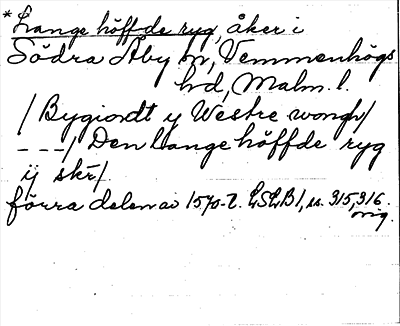 * Lange höffde ryg, åker i
Södra Åby sn, Vemmenhögs
hd, Malm. l.
/ Bygiordt y Westre wongh/
- - -/ Den Lange höffde ryg
ij skr/.
förra delen av 1570-t. LSLB 1, ss. 315, 316.
orig.